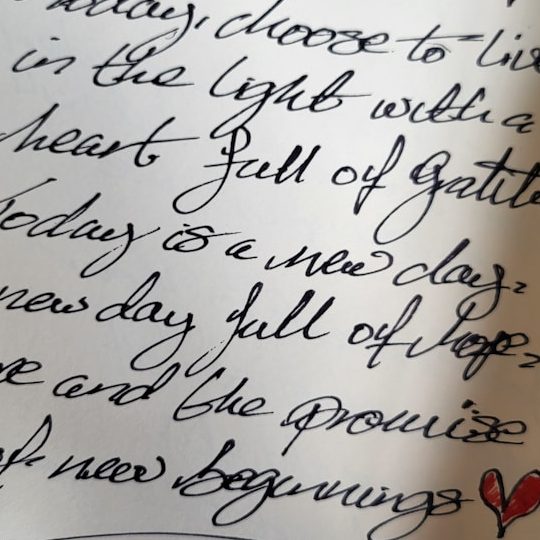 today, choose to live
in the light with a
heart full of Gatit
Today is a new day.
new day full of hope,
and the promise
of new beginnings